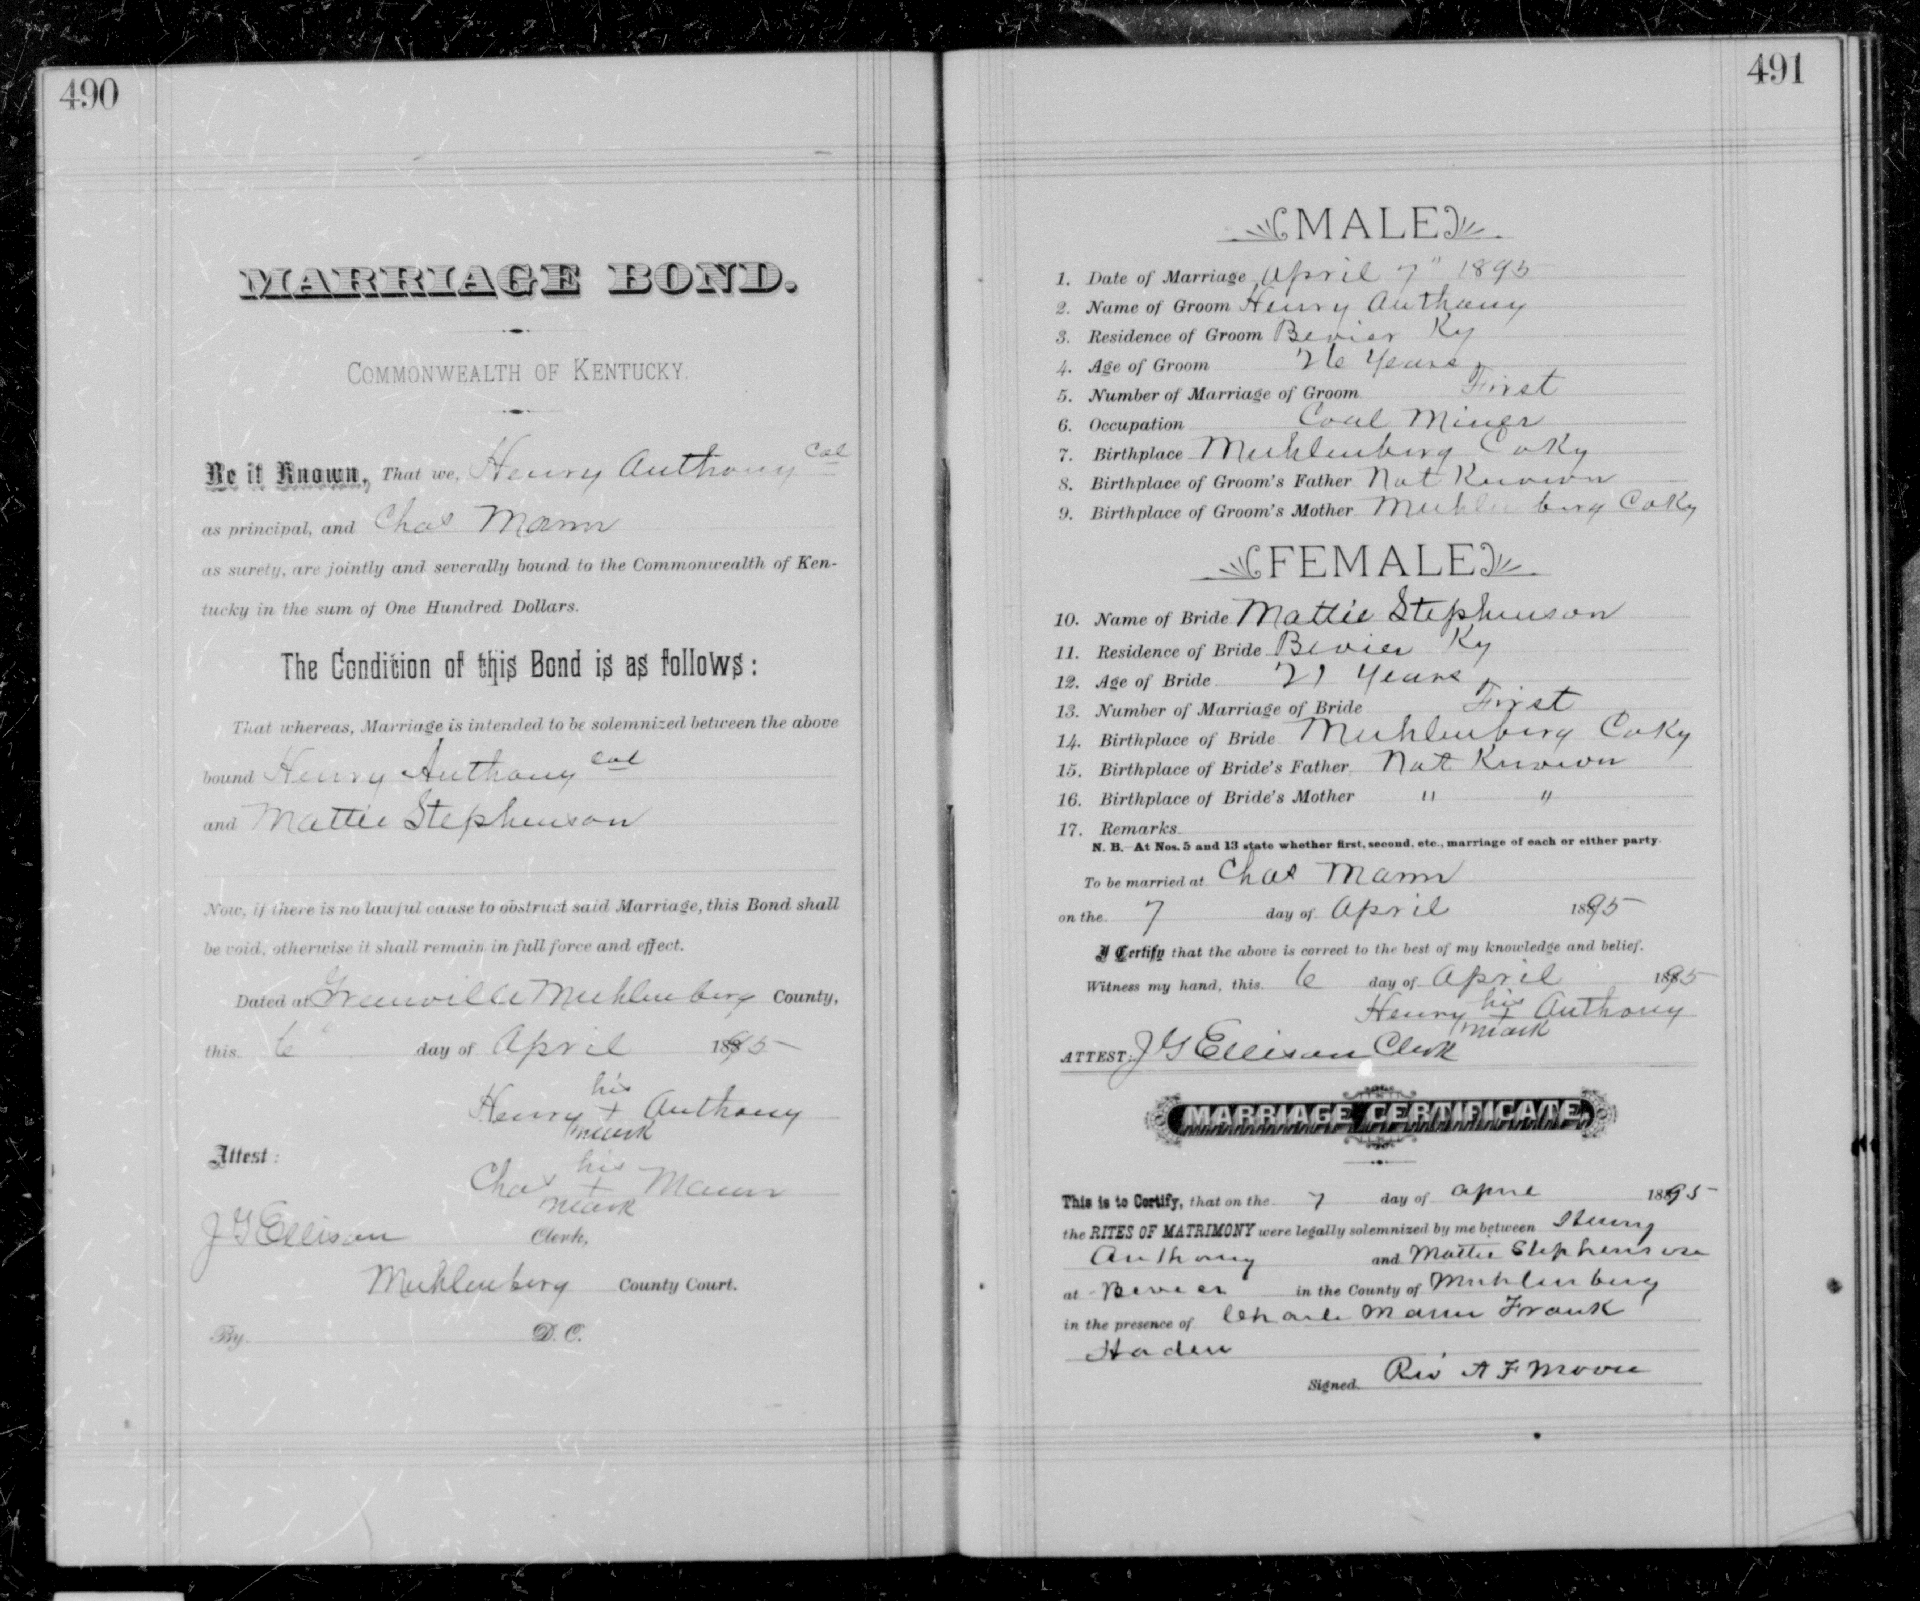 490
MARRIAGE BOND.
COMMONWEALTH OF KENTUCKY.
Be it Known, That we, Henry Anthony Col
as principal, and Chas Mann
as surety, are jointly and severally bound to the Commonwealth of Ken-
tucky in the sum of One Hundred Dollars.
The Condition of this Bond is as follows:
That whereas, Marriage is intended to be solemnized between the above
bound Henry Anthony Col
and Mattie Stephenson
Now, if there is no lawful cause to obstruct said Marriage, this Bond shall
be void, otherwise it shall remain in full force and effect.
Dated at Greenville Muhlenberg County,
this 6" day of April 1895
his
Henry + Anthony
mark
Attest:
his
Chas + Mann
mark
J G Ellison Clerk,
Muhlenberg County Court.
By D. C.
491
MALE
1. Date of Marriage April 7" 1895
2. Name of Groom Henry Anthony
3. Residence of Groom Bevier Ky
4. Age of Groom 26 Years
5. Number of Marriage of Groom First
6. Occupation Coal Miner
7. Birthplace Muhlenberg Co Ky
8. Birthplace of Groom's Father Not Known
9. Birthplace of Groom's Mother Muhlenberg Co Ky
FEMALE
10. Name of Bride Mattie Stephenson
11. Residence of Bride Bevier Ky
12. Age of Bride 21 Years
13. Number of Marriage of Bride First
14. Birthplace of Bride Muhlenberg Co Ky
15. Birthplace of Bride's Father Not Known
16. Birthplace of Bride's Mother " "
17. Remarks
N. B.—At Nos. 5 and 13 state whether first, second, etc., marriage of each or either party.
To be married at Chas Mann
on the 7 day of April 1895
I Certify that the above is correct to the best of my knowledge and belief.
Witness my hand, this 6 day of April 1895
his
Henry + Anthony
mark
ATTEST: J G Ellison Clerk
MARRIAGE CERTIFICATE.
This is to Certify, that on the 7 day of April 1895
the RITES OF MATRIMONY were legally solemnized by me between Henry
Anthony and Mattie Stephenson
at Bevier in the County of Muhlenberg
in the presence of Charle Mann Frank
Haden
Signed Rev A F Moore